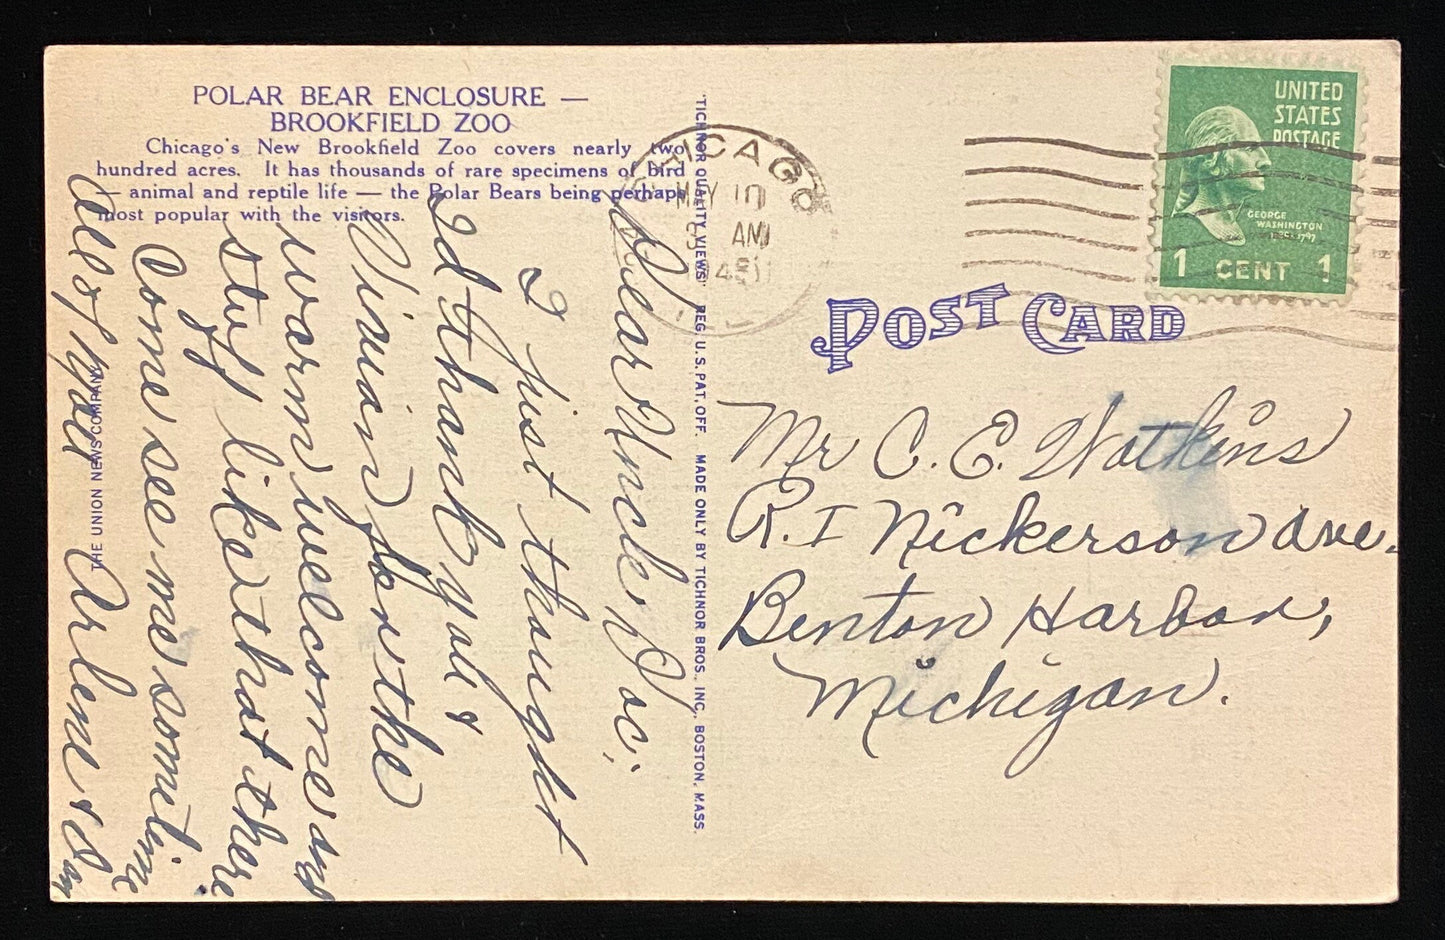 POLAR BEAR ENCLOSURE —
BROOKFIELD ZOO
Chicago's New Brookfield Zoo covers nearly two
hundred acres. It has thousands of rare specimens of bird
— animal and reptile life — the Polar Bears being perhaps
most popular with the visitors.
Dear Uncle Doc;
I just thought
I'd thank you &
Vivian for the
warm welcome and
stuff like that there
Come see me sometime
All of you
Arlene & Dan
THE UNION NEWS COMPANY
"TICHNOR QUALITY VIEWS" REG. U.S. PAT. OFF. MADE ONLY BY TICHNOR BROS., INC., BOSTON, MASS.
CHICAGO
MAY 10
AM
1948
ILL
UNITED
STATES
POSTAGE
GEORGE
WASHINGTON
1789-1797
1 CENT 1
POST CARD
Mr C. E. Watkins
R.I Nickerson Ave.
Benton Harbor,
Michigan.